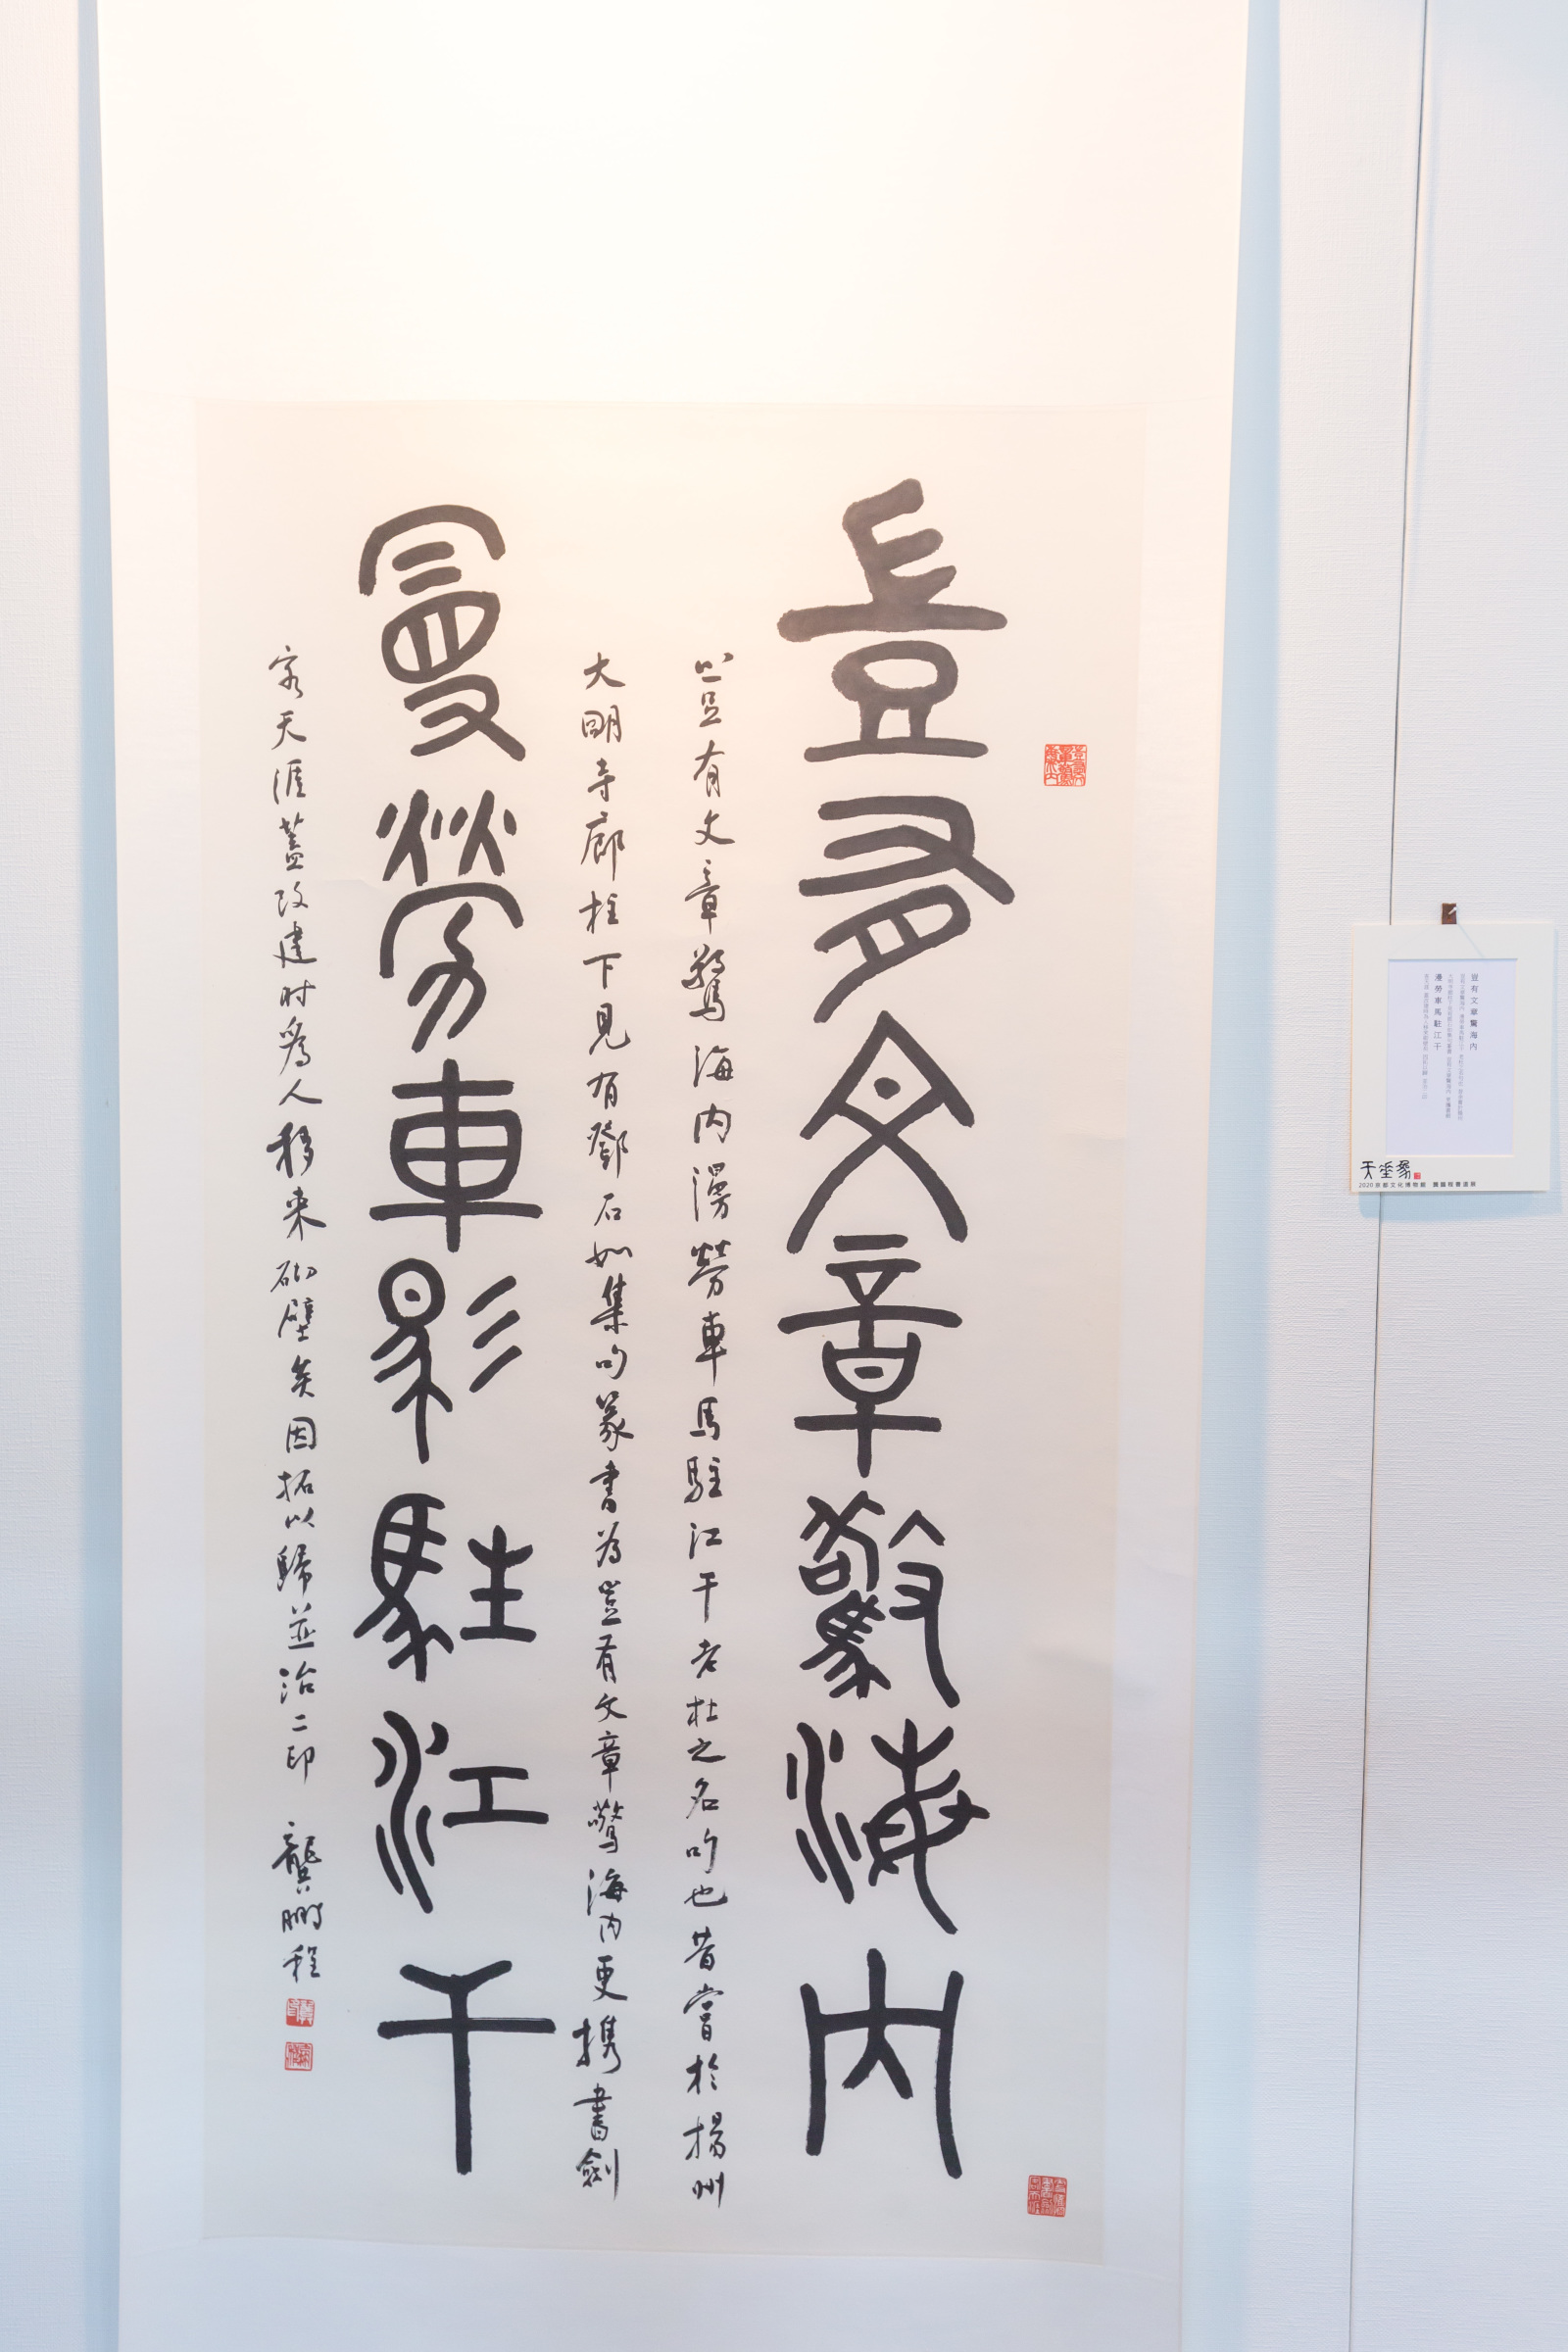 豈有文章驚海内
豈有文章驚海内漫勞車馬駐江干老杜之名句也昔嘗於揚州
大明寺廊柱下見有鄧石如集句篆書為豈有文章驚海内更携書劍
曼勞車馬駐江干
客天涯蓋改建时為人移来砌壁矣因拓以歸並治二印 龔鵬程
豈有文章驚海內
漫勞車馬駐江干
天垂象
2020京都文化博物館 龔鵬程書道展